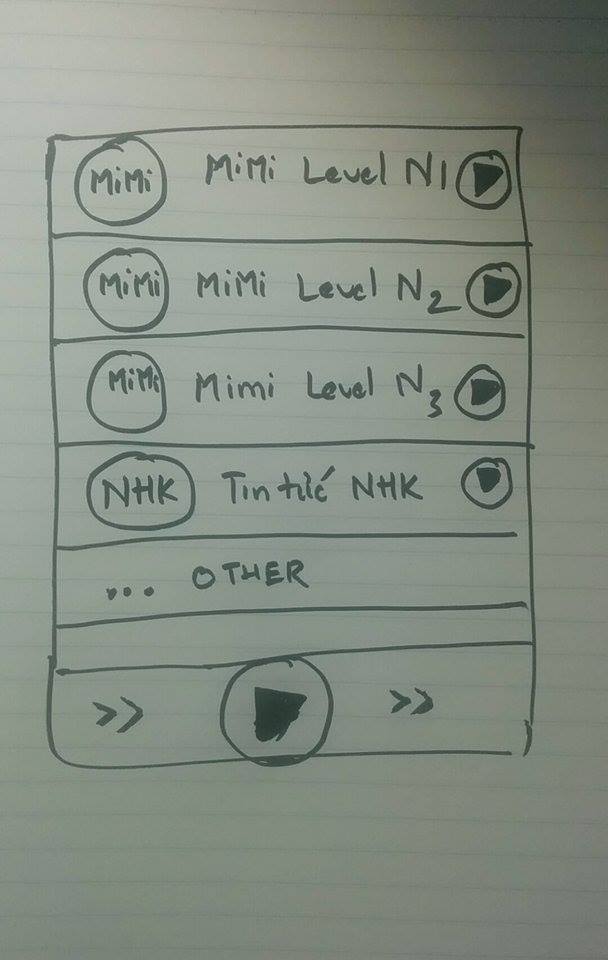 MiMi MiMi Level N1
MiMi MiMi Level N2
MiMi Mimi Level N3
NHK Tin tức NHK
... OTHER
>> >>